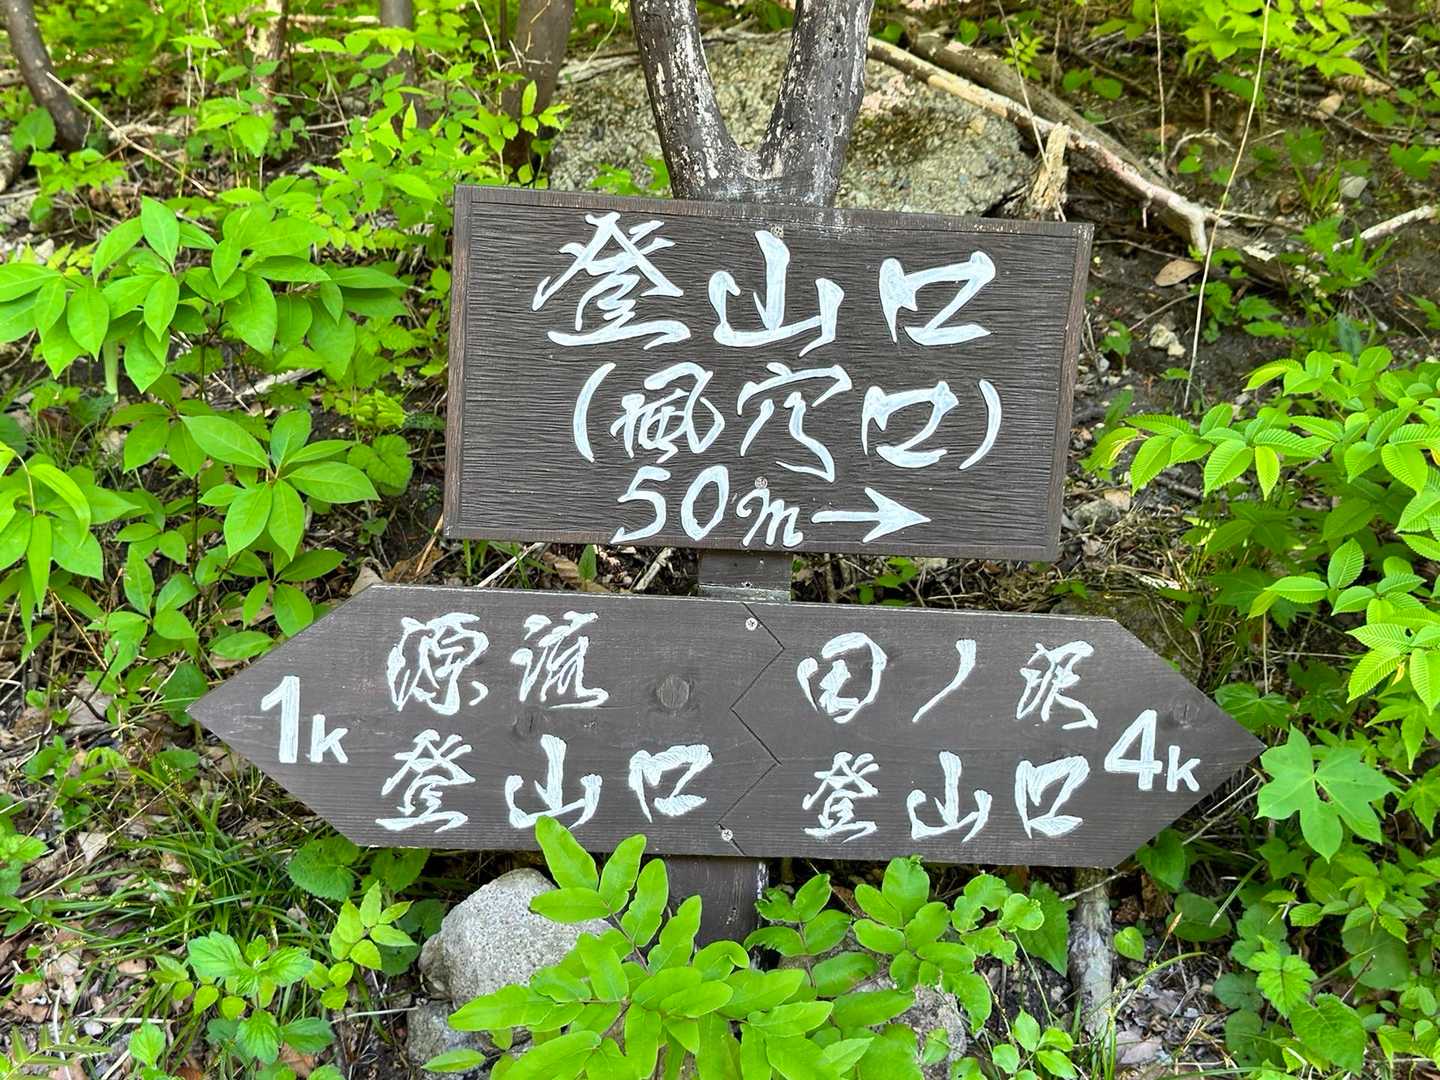 登山口
(風穴口)
50m→
源流
登山口
1k
田ノ沢
登山口
4k